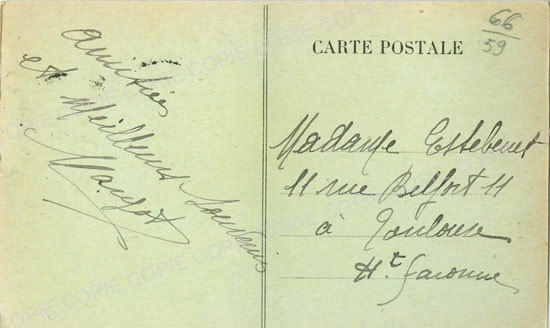 Amitiés
et Meilleurs Souvenirs
Margot
CARTE POSTALE
66
59
Madame Estebenet
11 rue Belfort 11
à Toulouse
Hte Garonne
COPIE COPIE COPIE COPIE COPIE